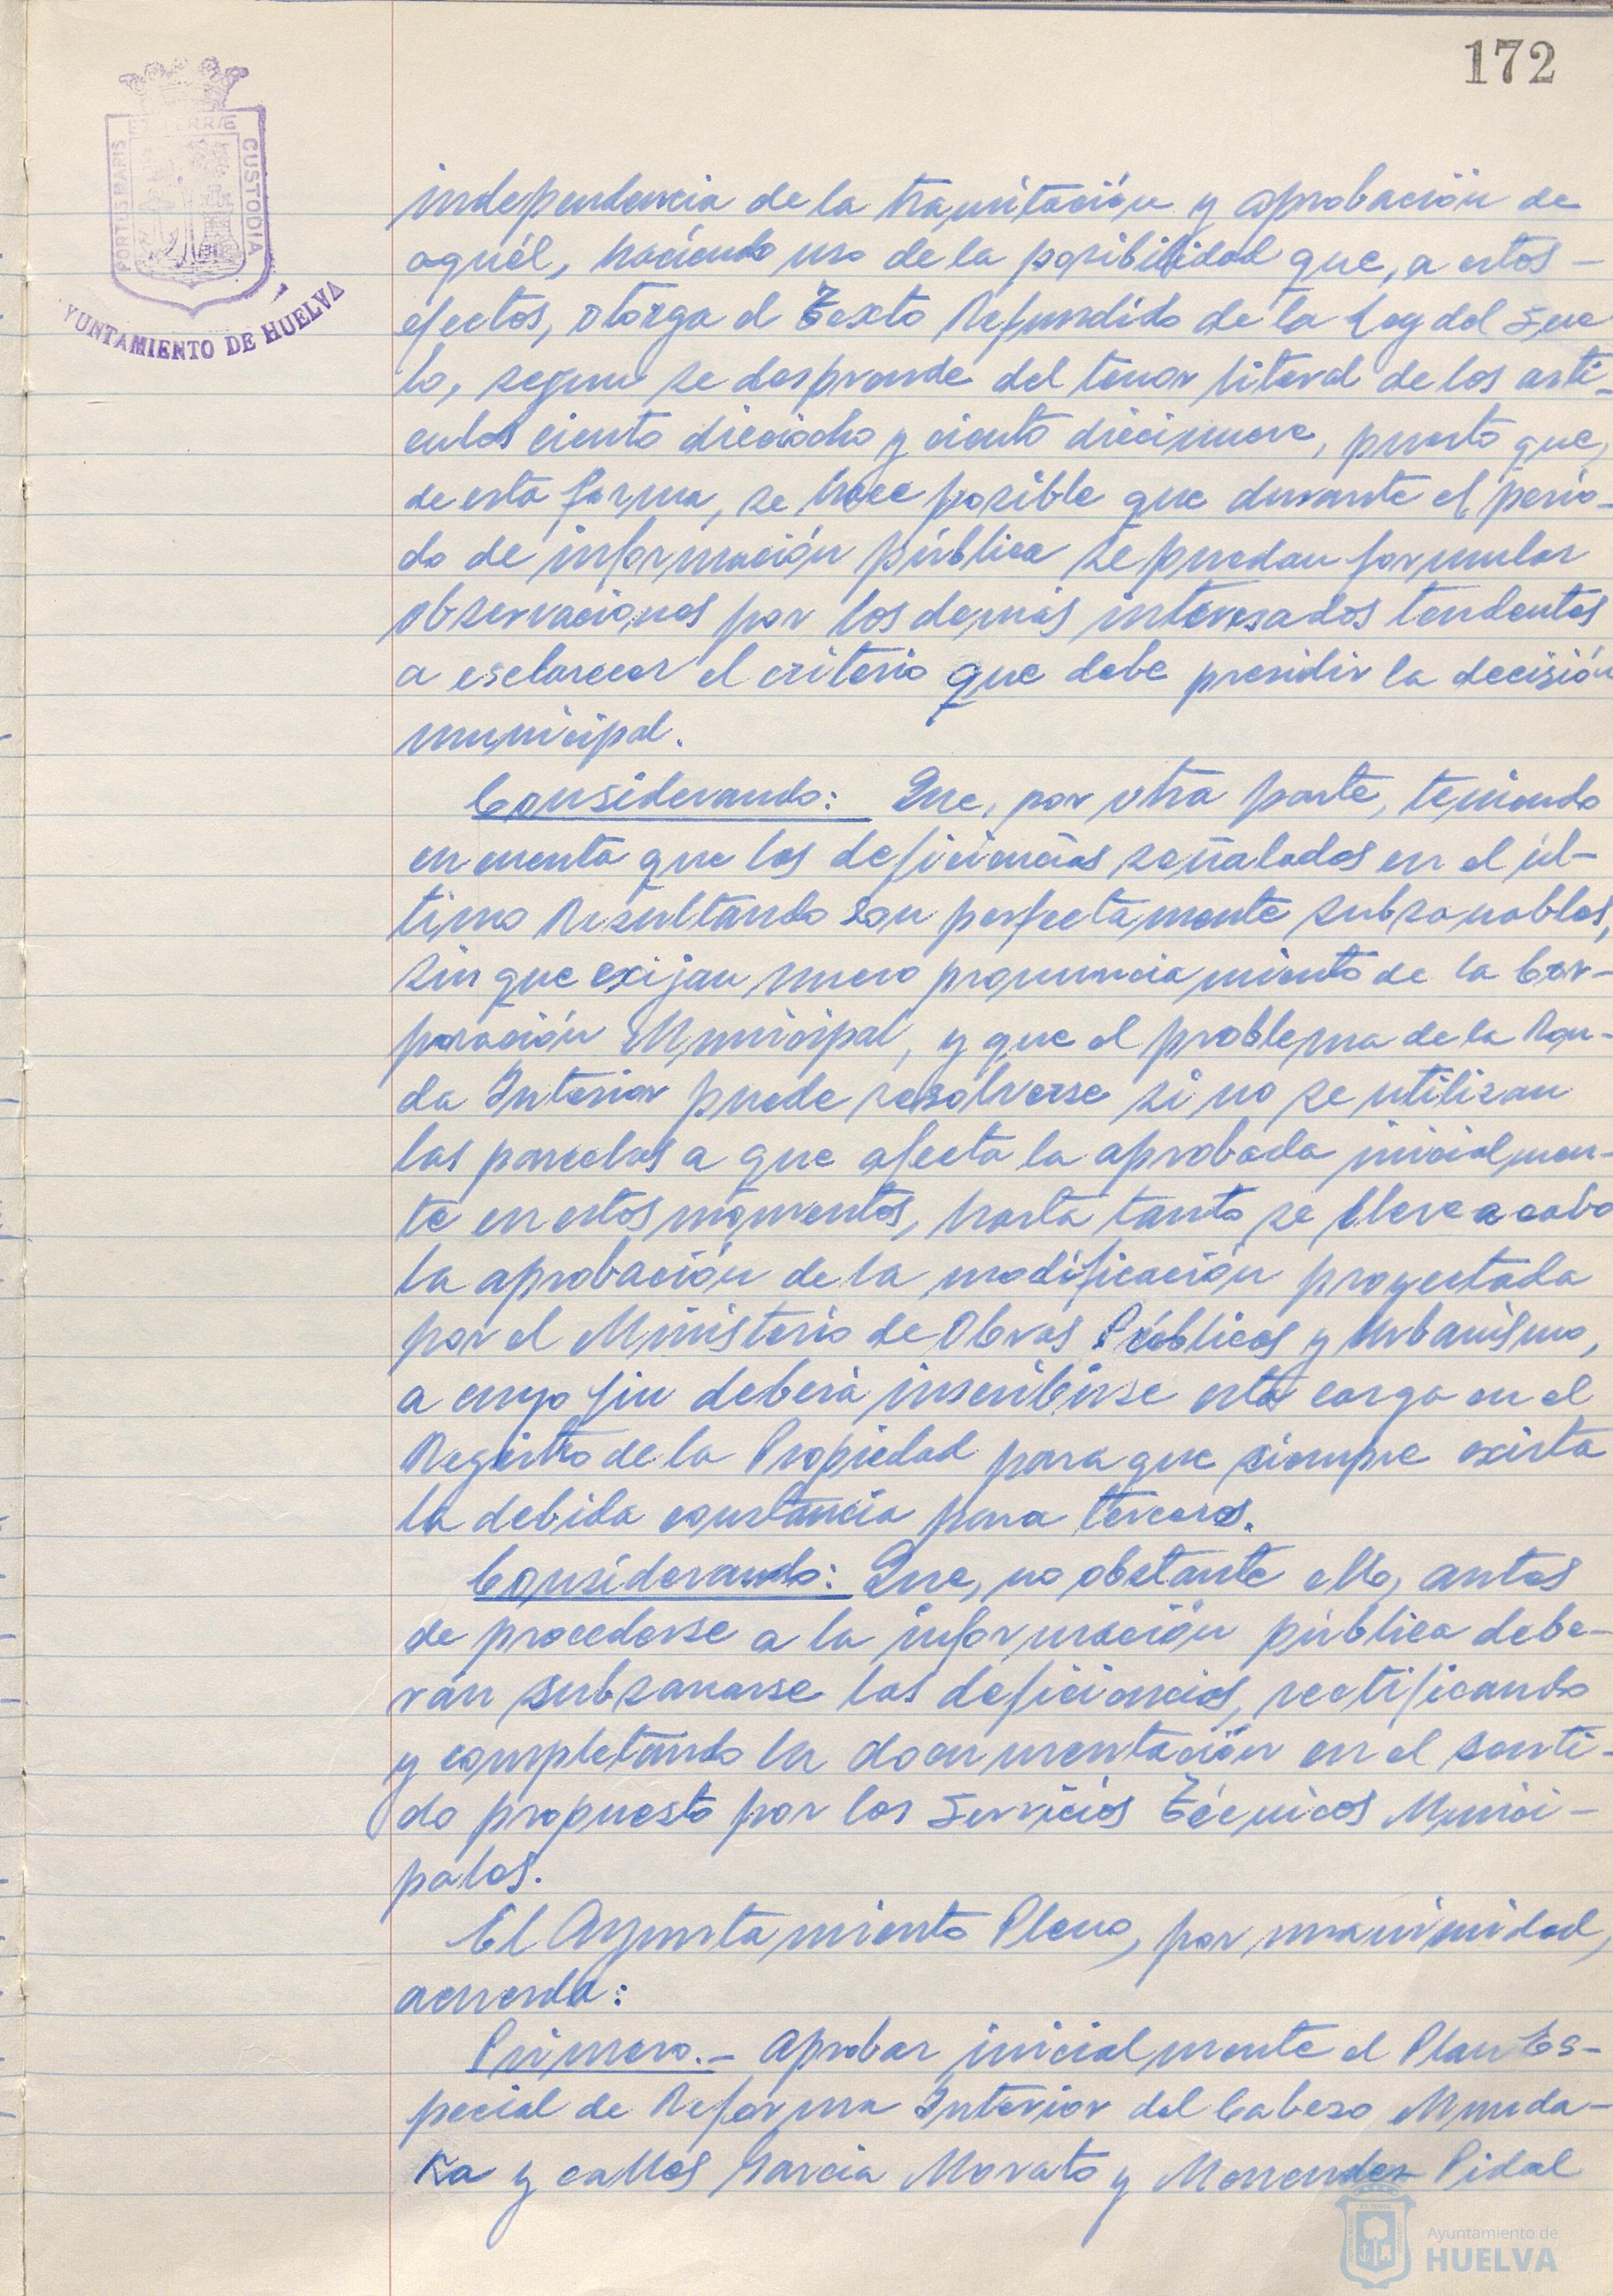 172
PORTUS MARIS
ET TERRÆ
CUSTODIA
YUNTAMIENTO DE HUELVA
independencia de la tramitación y aprobación de
aquél, haciendo uso de la posibilidad que, a estos -
efectos, otorga el Texto Refundido de la Ley del Sue
lo, segun se desprende del tenor literal de los artí-
culos ciento dieciocho y ciento diecinueve, puesto que,
de esta forma, se hace posible que durante el perio-
do de información pública se puedan formular
observaciones por los demás interesados tendentes
a esclarecer el criterio que debe presidir la decisión
municipal.
Considerando: Que, por otra parte, teniendo
en cuenta que las deficiencias señaladas en el úl-
timo Resultando son perfectamente subsanables,
sin que exijan nuevo pronunciamiento de la Cor-
poración Municipal, y que el problema de la Ron-
da Interior puede resolverse si no se utilizan
las parcelas a que afecta la aprobada inicialmen-
te en estos momentos, hasta tanto se lleve a cabo
la aprobación de la modificación proyectada
por el Ministerio de Obras Públicas y Urbanismo,
a cuyo fin deberá inscribirse esta carga en el
Registro de la Propiedad para que siempre exista
la debida constancia para terceros.
Considerando: Que, no obstante ello, antes
de procederse a la información pública debe-
rán subsanarse las deficiencias, rectificando
y completando la documentación en el senti-
do propuesto por los Servicios Técnicos Munici-
pales.
El Ayuntamiento Pleno, por unanimidad,
acuerda:
Primero.- Aprobar inicialmente el Plan Es-
pecial de Reforma Interior del Cabezo Munda-
ka y calles García Morato y Menendez Pidal
Ayuntamiento de
HUELVA